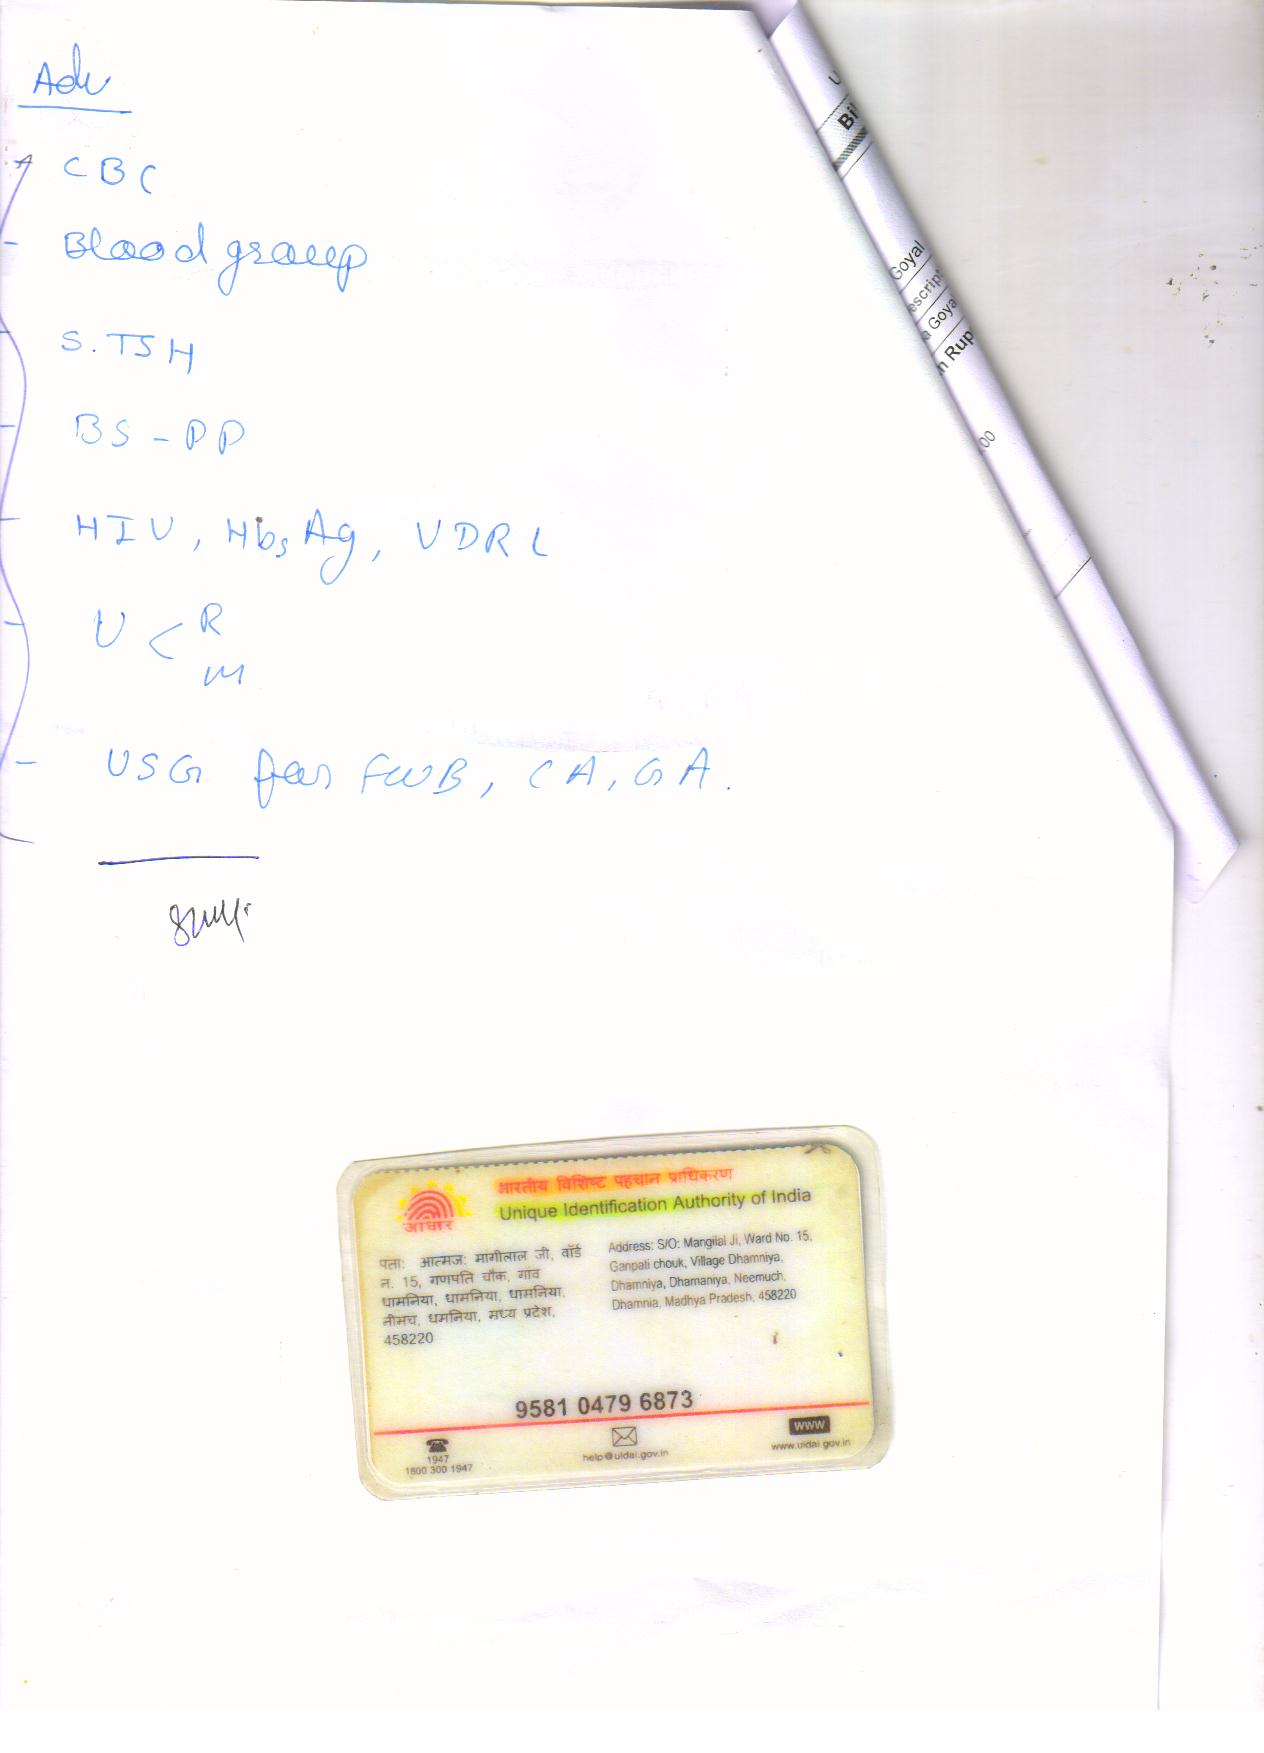 Adv
CBC
Blood group
S.TSH
BS-PP
HIV, HbsAg, VDRL
U < R
M
USG for FWB, CA, GA.
Goyal
escrip
a Goya
n Rup
.00
भारतीय विशिष्ट पहचान प्राधिकरण
Unique Identification Authority of India
आधार
पता: आत्मज: मागीलाल जी, वॉर्ड
न. 15, गणपति चौक, गांव
धामनिया, धामनिया, धामनिया,
नीमच, धमनिया, मध्य प्रदेश,
458220
Address: S/O: Mangilal Ji, Ward No. 15,
Ganpati chouk, Village Dhamniya,
Dhamniya, Dhamaniya, Neemuch,
Dhamnia, Madhya Pradesh, 458220
9581 0479 6873
1947
1800 300 1947
help@uidai.gov.in
www
www.uidai.gov.in